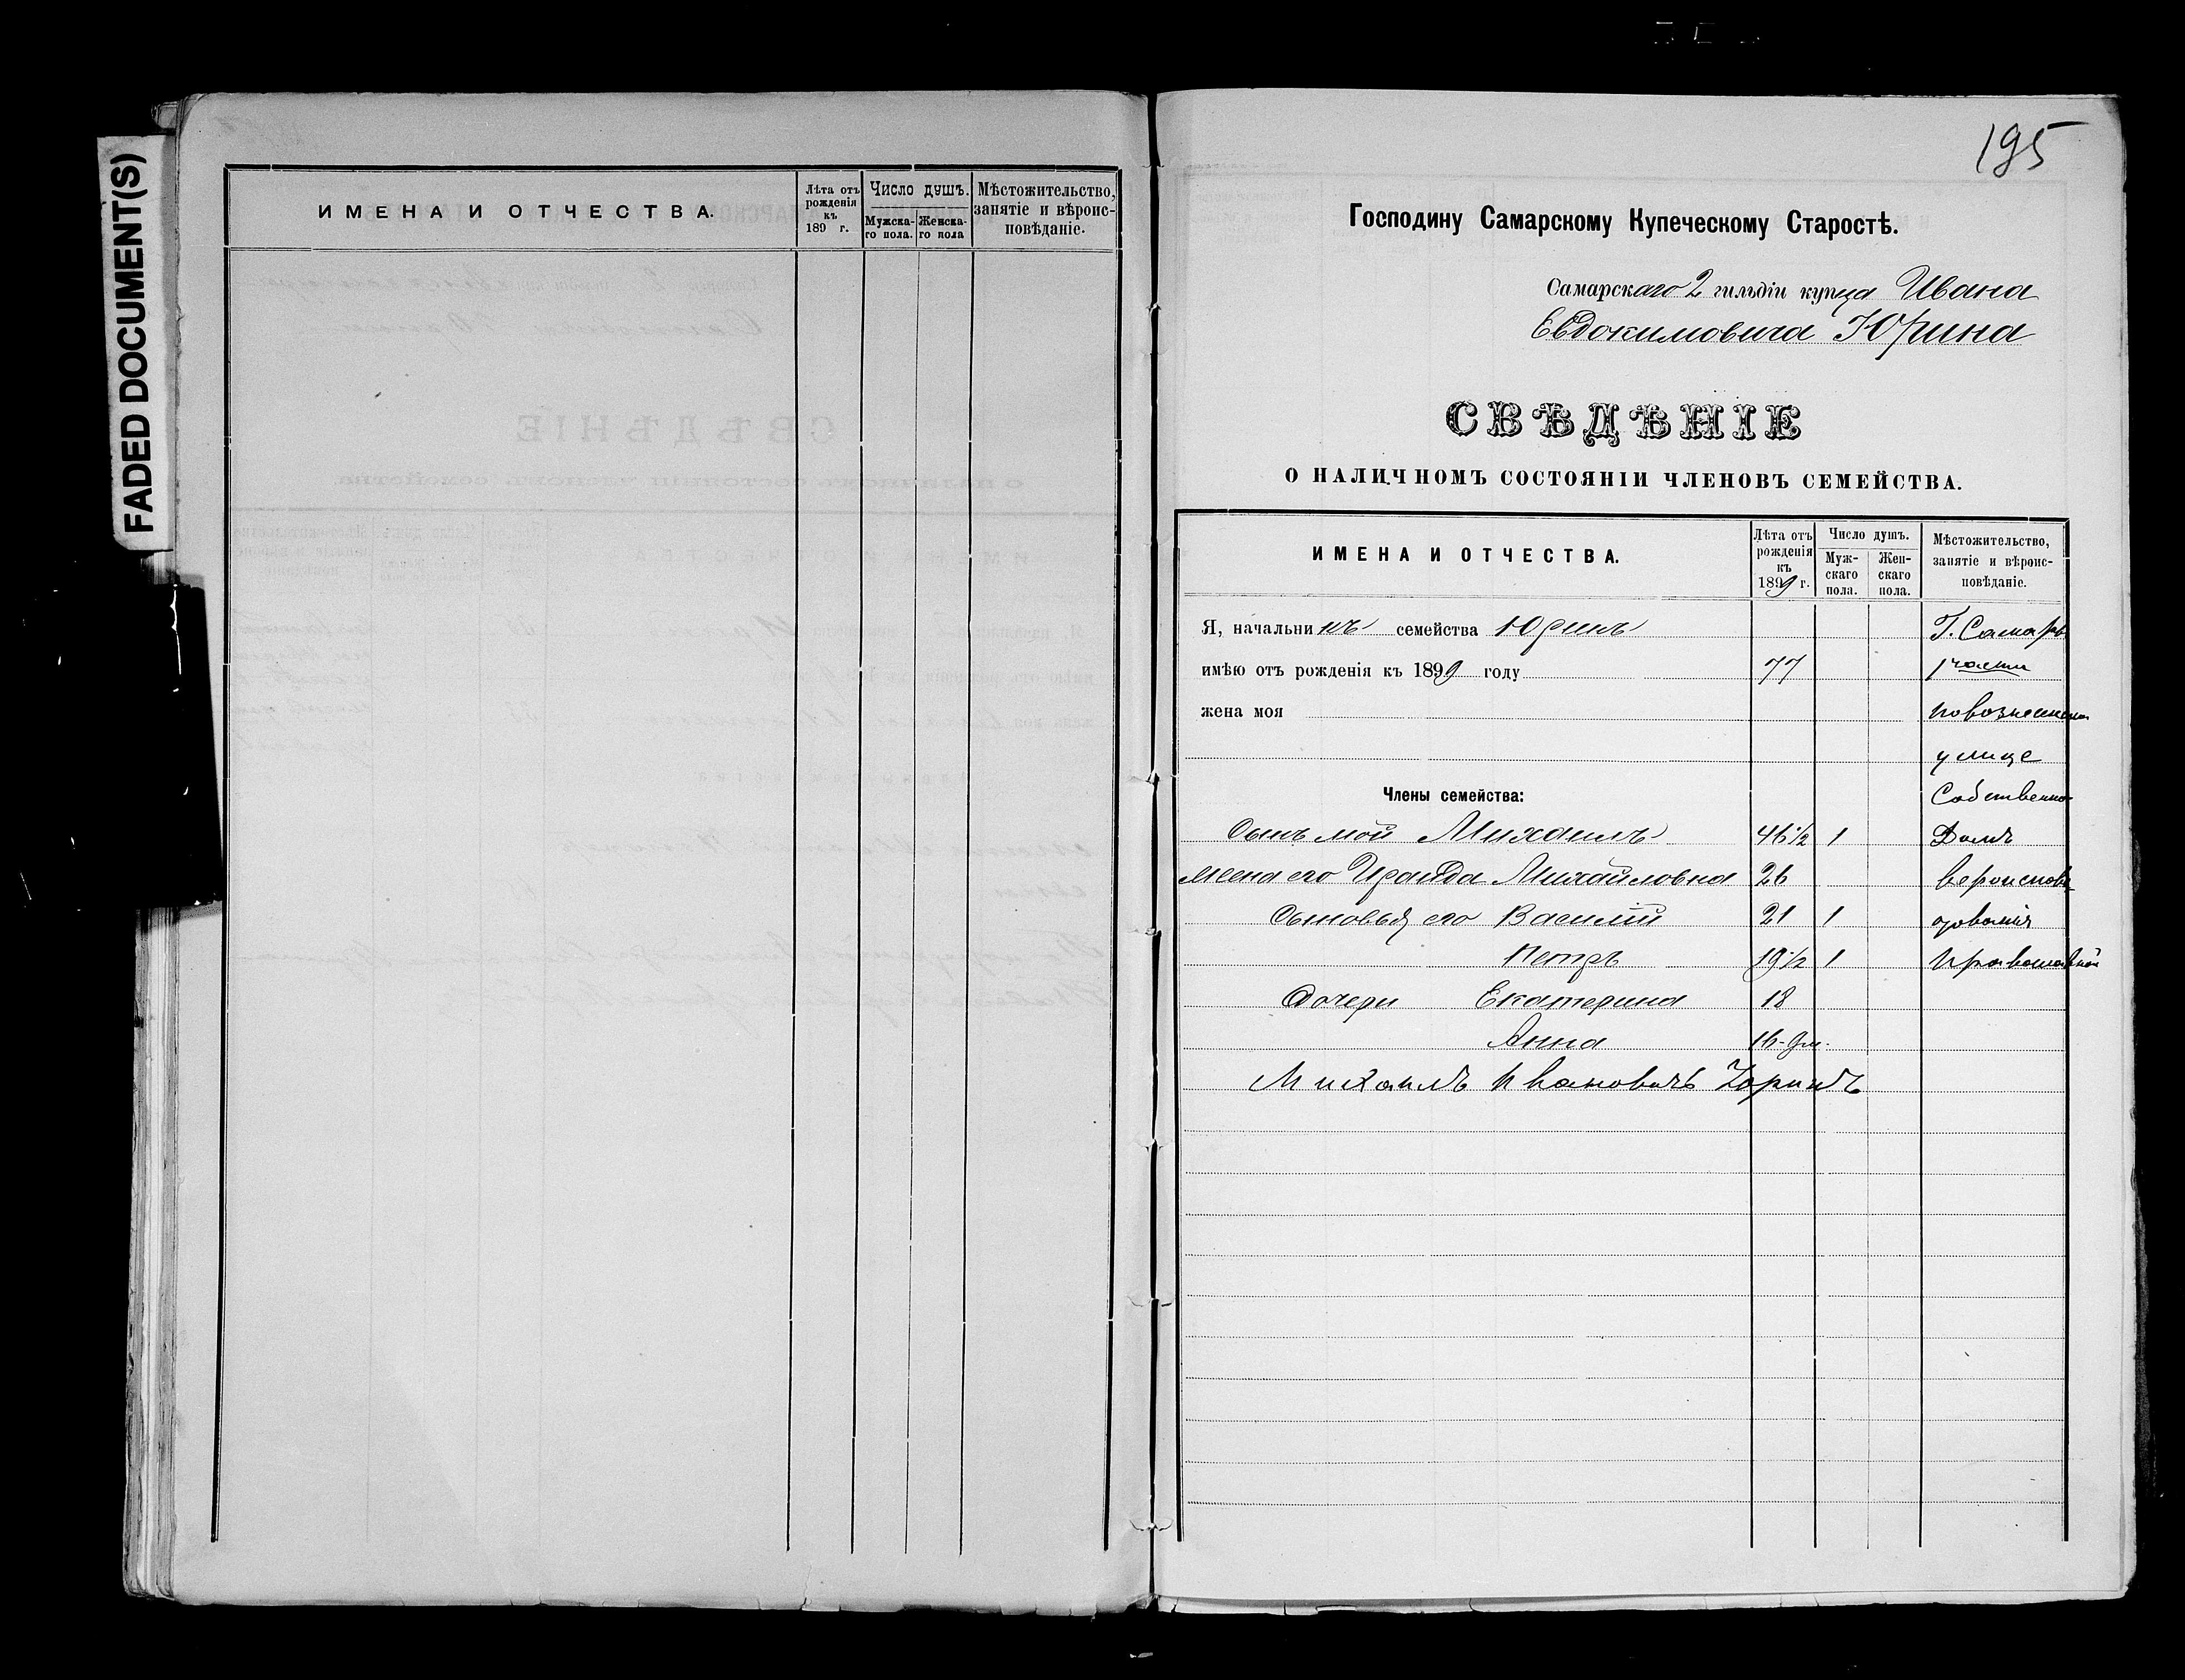 FADED DOCUMENT(S)
ИМЕНА И ОТЧЕСТВА.
Лѣта отъ рожденія къ 189 г.
Число душъ.
Мужска-го пола.
Женска-го пола
Мѣстожительство, занятіе и вѣроис-повѣданіе.
195
Господину Самарскому Купеческому Старостѣ.
Самарскаго 2 гильдіи купца Ивана
Евдокимовича Юрина
СВѢДѢНІЕ
О НАЛИЧНОМЪ СОСТОЯНІИ ЧЛЕНОВЪ СЕМЕЙСТВА.
ИМЕНА И ОТЧЕСТВА.
Лѣта отъ рожденія къ 1899 г.
Число душъ.
Муж-скаго пола.
Жен-скаго пола.
Мѣстожительство, занятіе и вѣроис-повѣданіе.
Я, начальникъ семейства Юринъ Г. Самара
имѣю отъ рожденія къ 1899 году 77 1 части
жена моя
улице
Члены семейства: Собственно
Сынъ мой Михаилъ 46 1/2 1 Домъ
жена его Ираида Михайловна 26
Сыновья его Василій 21 1
Петръ 19 1/2 1
Дочери Екатерина 18
Анна 16-9м.
Михаилъ Ивановичъ Юринъ